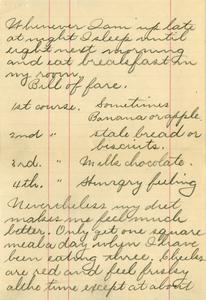 Whenever I am up late
at night I sleep until
eight next morning
and eat breakfast in
my room.
Bill of fare.
1st course. Sometimes
Banana or apple.
2nd " stale bread or
biscuits.
3rd. " Milk chocolate.
4th. " Hungry feeling
Nevertheless my diet
makes me feel much
better. Only get one square
meal a day when I have
been eating three. Cheeks
are red and feel frisky
all the time except at about